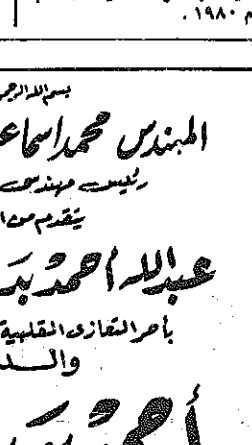 م ١٩٨٠ .
بسم الله الرحمن
المهندس محمد اسماع
رئيس مهندسي
يتقدم من ا
عبدالله أحمد بد
بأحر التعازي القلبية
والــد